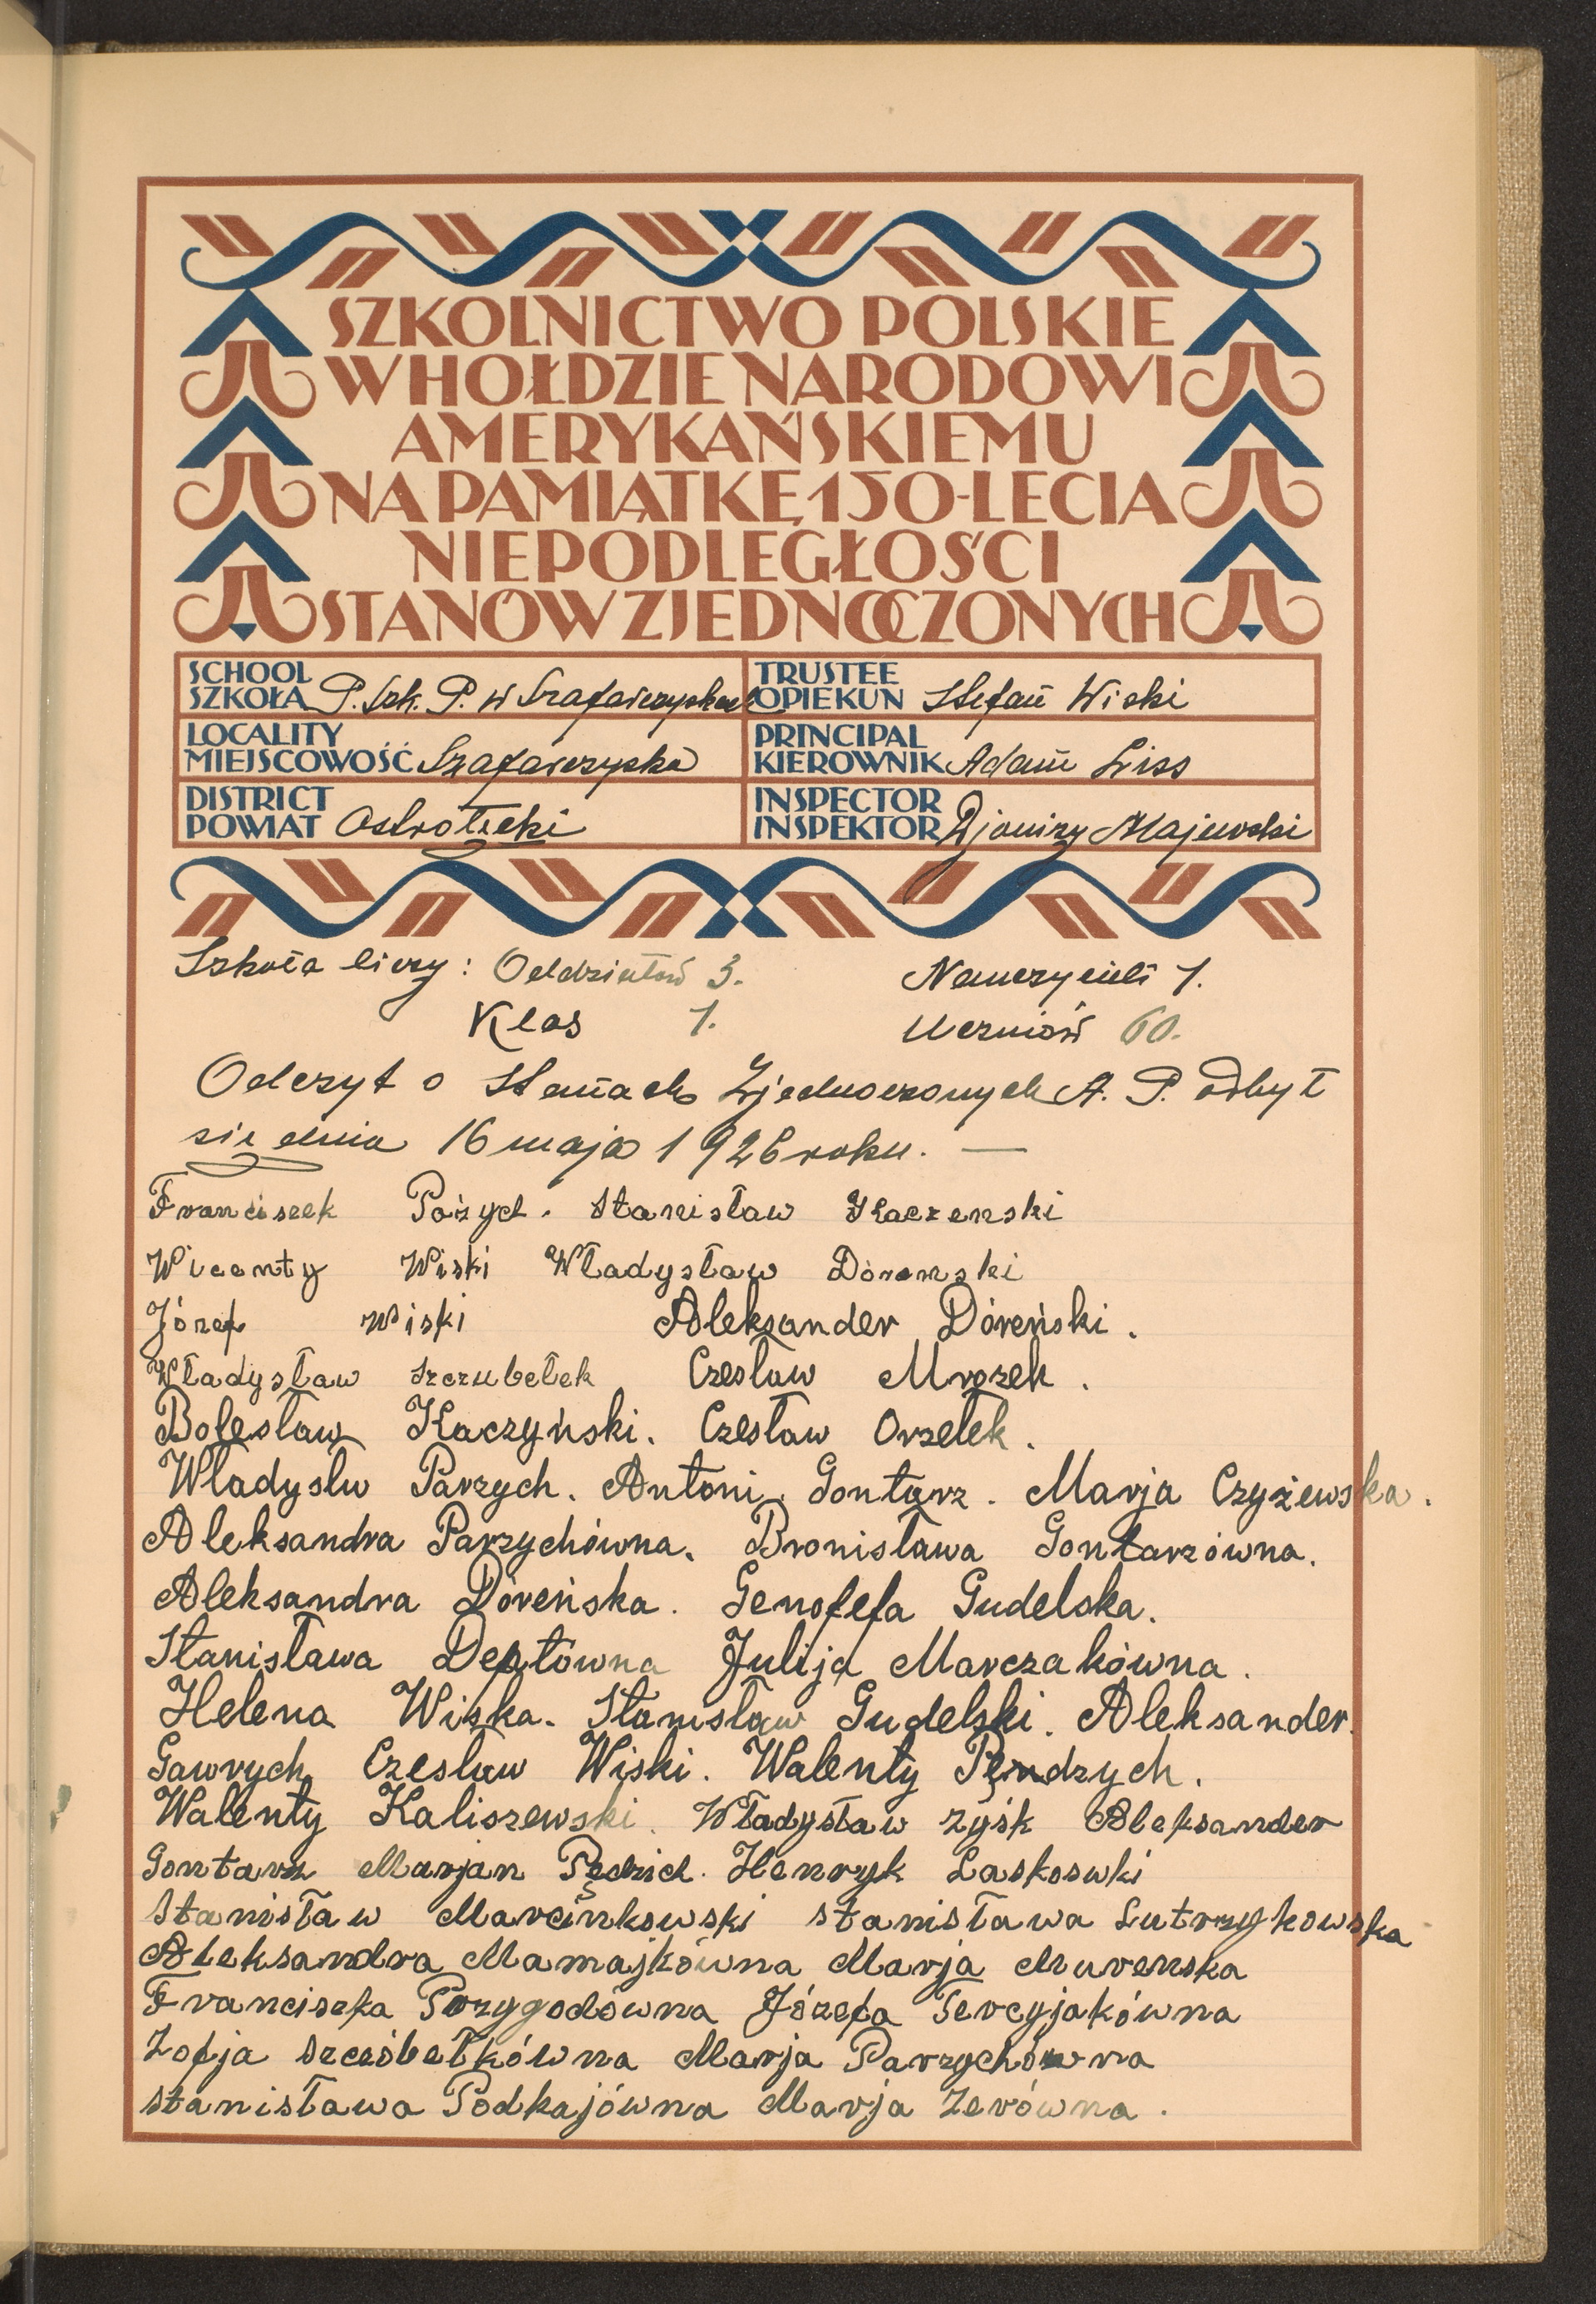 SZKOLNICTWO POLSKIE
W HOŁDZIE NARODOWI
AMERYKAŃSKIEMU
NA PAMIĄTKĘ 150-LECIA
NIEPODLEGŁOŚCI
STANÓW ZJEDNOCZONYCH
SCHOOL
SZKOŁA P. Szk. P. w Szafarczyskach
TRUSTEE
OPIEKUN Stefan Wiski
LOCALITY
MIEJSCOWOŚĆ Szafarczyska
PRINCIPAL
KIEROWNIK Adam Liss
DISTRICT
POWIAT Ostrołęcki
INSPECTOR
INSPEKTOR Djonizy Majewski
Szkoła liczy: Oddziałów 3. Nauczycieli 1.
Klas 1. Uczniów 60.
Odczyt o Stanach Zjednoczonych A. P. odbył
się dnia 16 maja 1926 roku. —
Franciszek Pożych. Stanisław Kaczenski
Wicenty Wiski Władysław Dórenski
Józef Wiski Aleksander Dóreński.
Władysław Szczubełek Czesław Mrozek.
Bolesław Kaczyński. Czesław Orzełek.
Wladyslw Parzych. Antoni. Gontarz. Marja Czyżewska.
Aleksandra Parzychówna. Bronisława Gontarzówna.
Aleksandra Dóreńska. Genofefa Gudelska.
Stanisława Deptówna Julija Marczakówna.
Helena Wiska. Stanisław Gudelski. Aleksander.
Gawrych Czesław Wiski. Walenty Pendzych.
Walenty Kaliszewski. Władysław Zyśk Aleksander
Gontarz Marjan Henryk Laskoswki
Stanisław Marcinkowski Stanisława Lutrzykowska
Aleksandra Mamajkówna Marja Murenska
Franciszka Przygodówna Józefa Tercyjakówna
Zofja Marja Parzychówna
Stanisława Podkajówna Marja Zerówna.